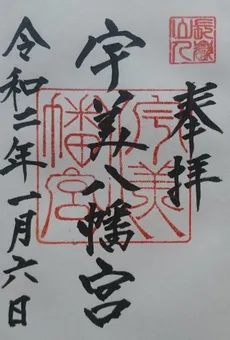 奉拝
宇美八幡宮
令和二年一月六日
宇美八幡宮